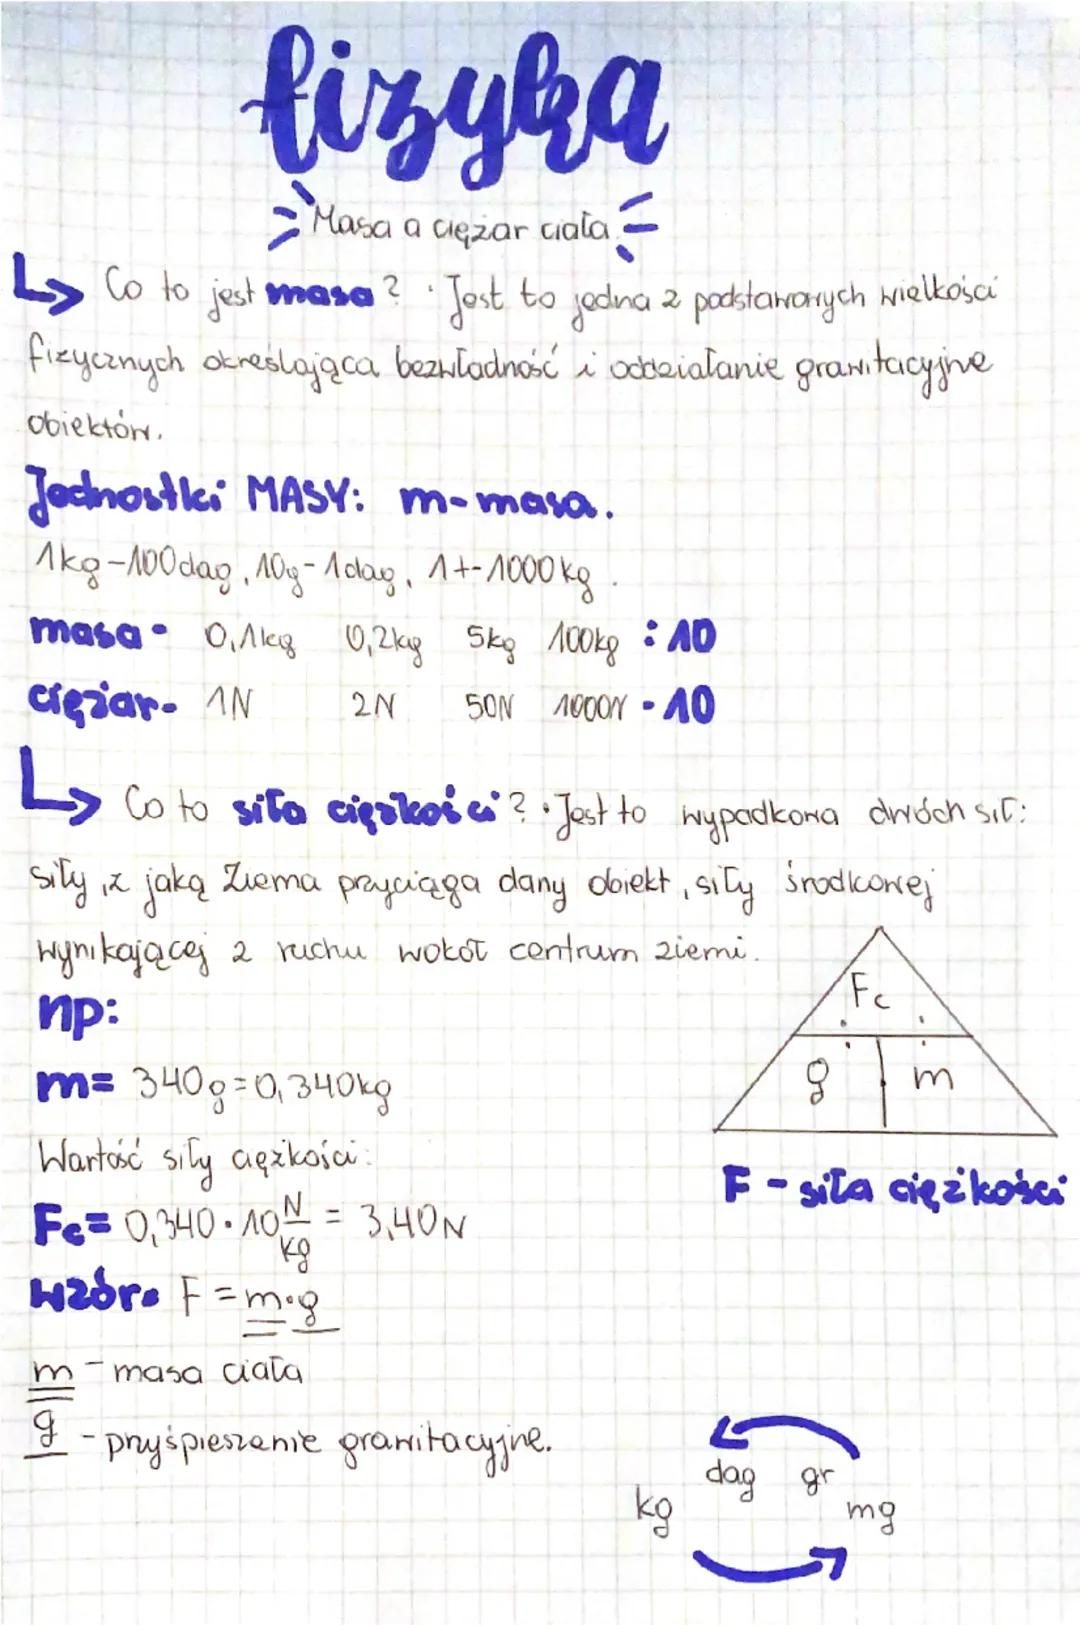 fizyka
Masa a ciężar ciała
Co to jest masa? · Jest to jedna z podstawowych wielkości
fizycznych określająca bezwładność i oddziałanie grawitacyjne
obiektów.
Jednostki MASY: m-masa.
1kg-100dag, 10g-1dag, 1t-1000kg.
masa- 0,1kg 0,2kg 5kg 100kg :10
ciężar- 1N 2N 50N 1000N ·10
Co to siła ciężkości? · Jest to wypadkowa dwóch sił:
siły, z jaką Ziema przyciąga dany obiekt, siły środkowej
wynikającej z ruchu wokół centrum ziemi.
np:
Fc
m= 340g=0,340kg
g m
Wartość siły ciężkości:
F - siła ciężkości
Fc= 0,340·10 N/kg = 3,40N
wzór- F = m·g
m - masa ciała
g - pryśpieszenie grawitacyjne.
kg dag gr mg